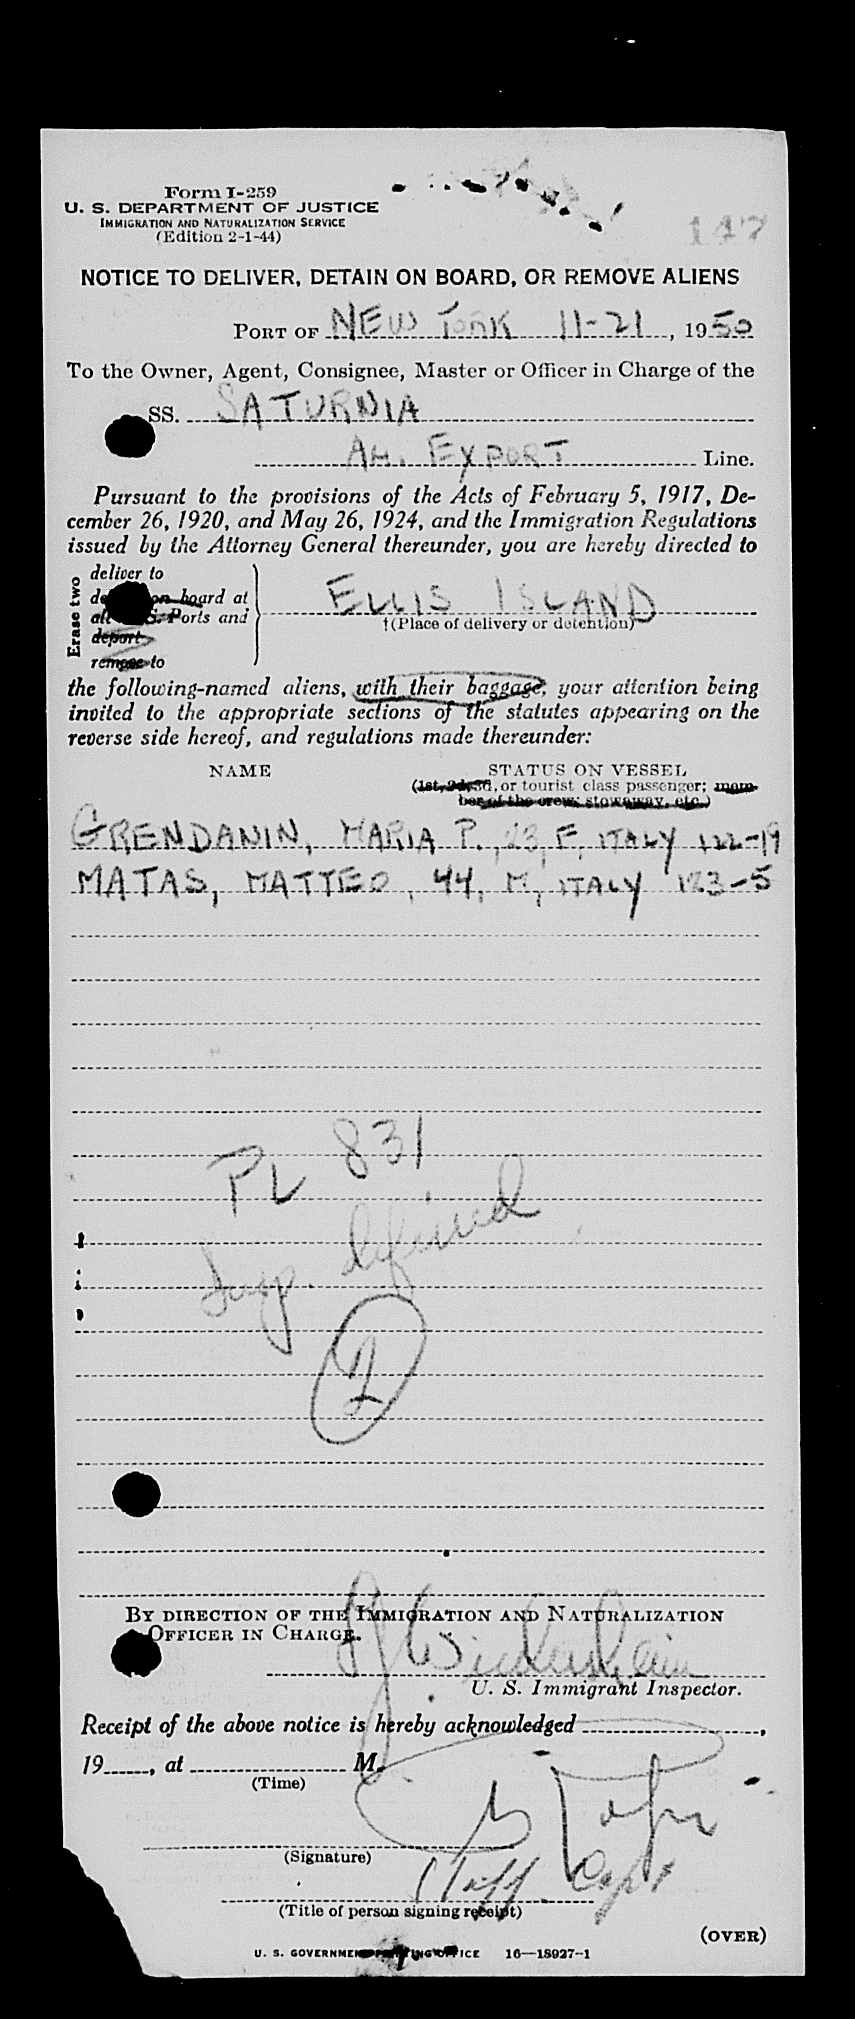 Form I-259
U. S. DEPARTMENT OF JUSTICE
IMMIGRATION AND NATURALIZATION SERVICE
(Edition 2-1-44)
147
NOTICE TO DELIVER, DETAIN ON BOARD, OR REMOVE ALIENS
PORT OF NEW YORK 11-21, 1950
To the Owner, Agent, Consignee, Master or Officer in Charge of the
SS. SATURNIA
AM. EXPORT Line.
Pursuant to the provisions of the Acts of February 5, 1917, De-
cember 26, 1920, and May 26, 1924, and the Immigration Regulations
issued by the Attorney General thereunder, you are hereby directed to
Erase two
deliver to
on board at
Ports and
deport
remove to
ELLIS ISLAND
†(Place of delivery or detention)
the following-named aliens, with their baggage, your attention being
invited to the appropriate sections of the statutes appearing on the
reverse side hereof, and regulations made thereunder:
NAME STATUS ON VESSEL
(1st, 2d, 3d, or tourist class passenger; mem-
ber of the crew; stowaway, etc.)
GRENDANIN, MARIA P., 23, F, ITALY 122-19
MATAS, MATTEO, 44, M, ITALY 123-5
PL 831
Insp. deferred
2
BY DIRECTION OF THE IMMIGRATION AND NATURALIZATION
OFFICER IN CHARGE.
U. S. Immigrant Inspector.
Receipt of the above notice is hereby acknowledged,
19, at M.
(Time)
(Signature)
Staff Capt
(Title of person signing receipt)
(OVER)
U. S. GOVERNMENT PRINTING OFFICE 16—18927-1